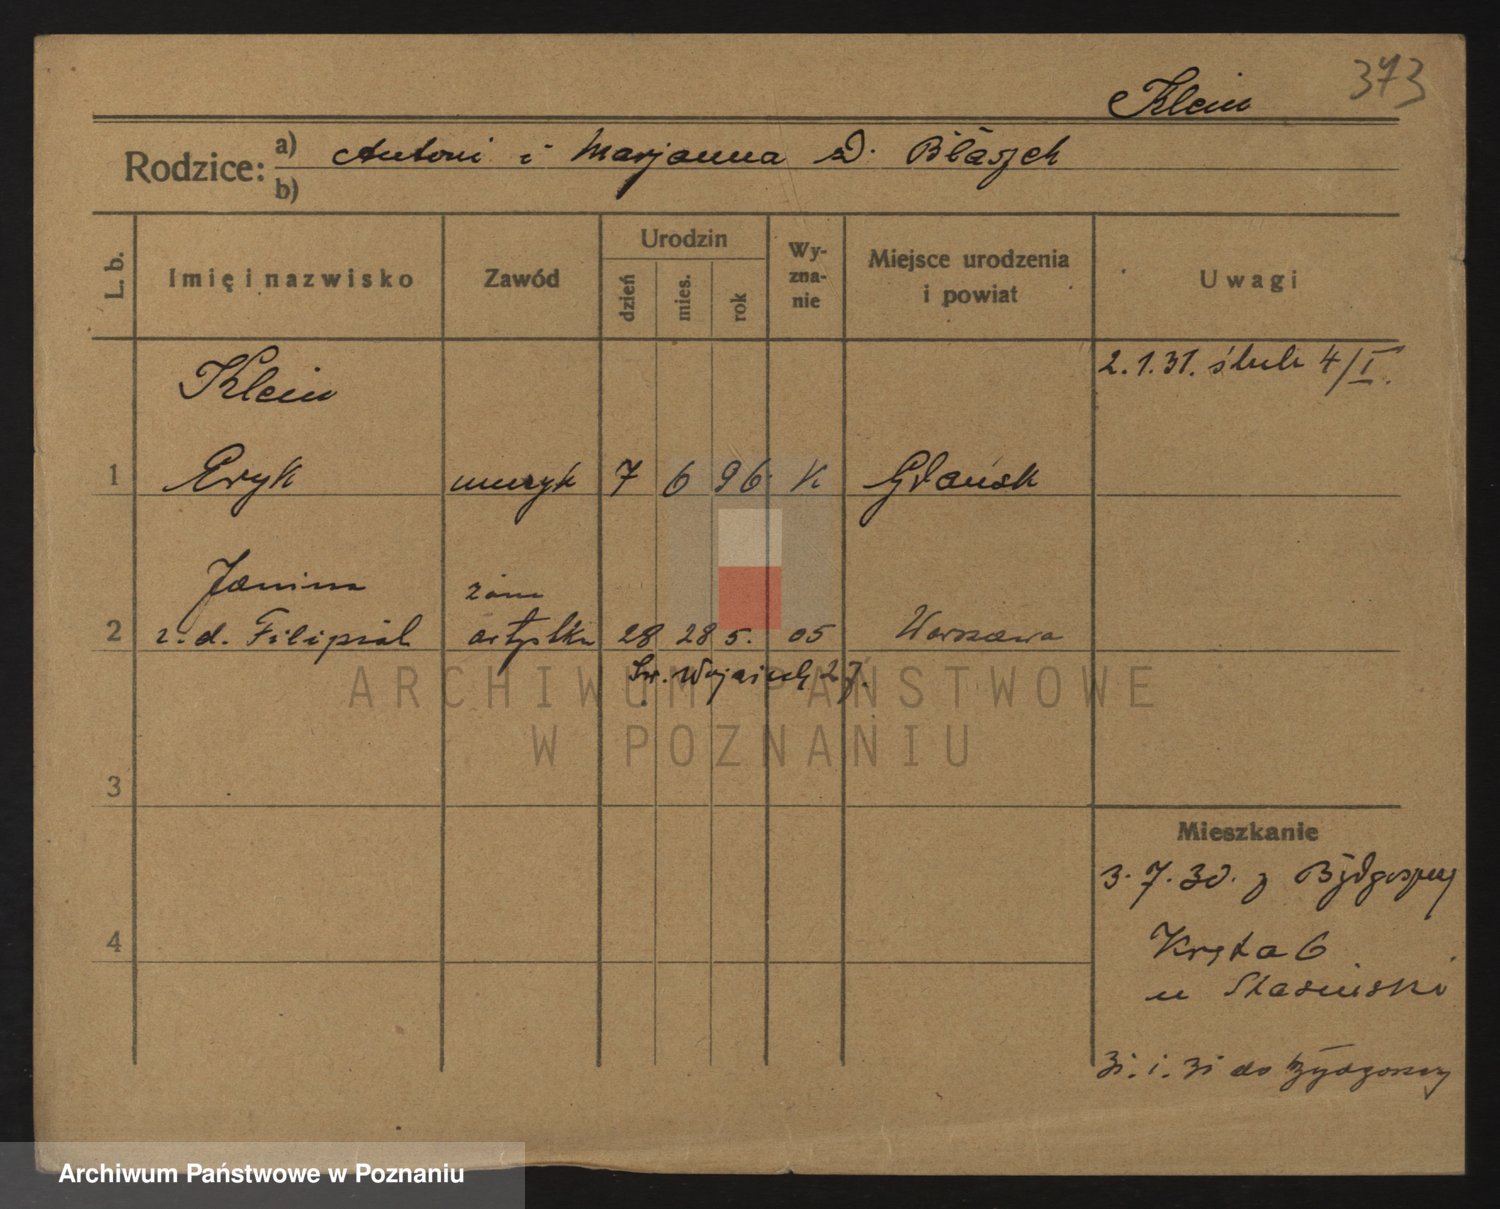 373
Klein
Rodzice: a) Antoni i Marjanna z d. Błaszch
b)
L. b. Imię i nazwisko Zawód Urodzin dzień mies. rok Wy-zna-nie Miejsce urodzenia i powiat Uwagi
Klein 2.1.31. ślub 4/I.
1 Eryk muzyk 7 6 96 K Gdańsk
Janina żona
2 z. d. Filipiak artystka 28 28 5. 05 Warszawa
Św. Wojciech 27.
ARCHIWUM PAŃSTWOWE
W POZNANIU
3
Mieszkanie
3. 7. 30. z Bydgoszczy
4 Kręta 6
u Stasiński
31. 1. 31 do Bydgoszczy
Archiwum Państwowe w Poznaniu